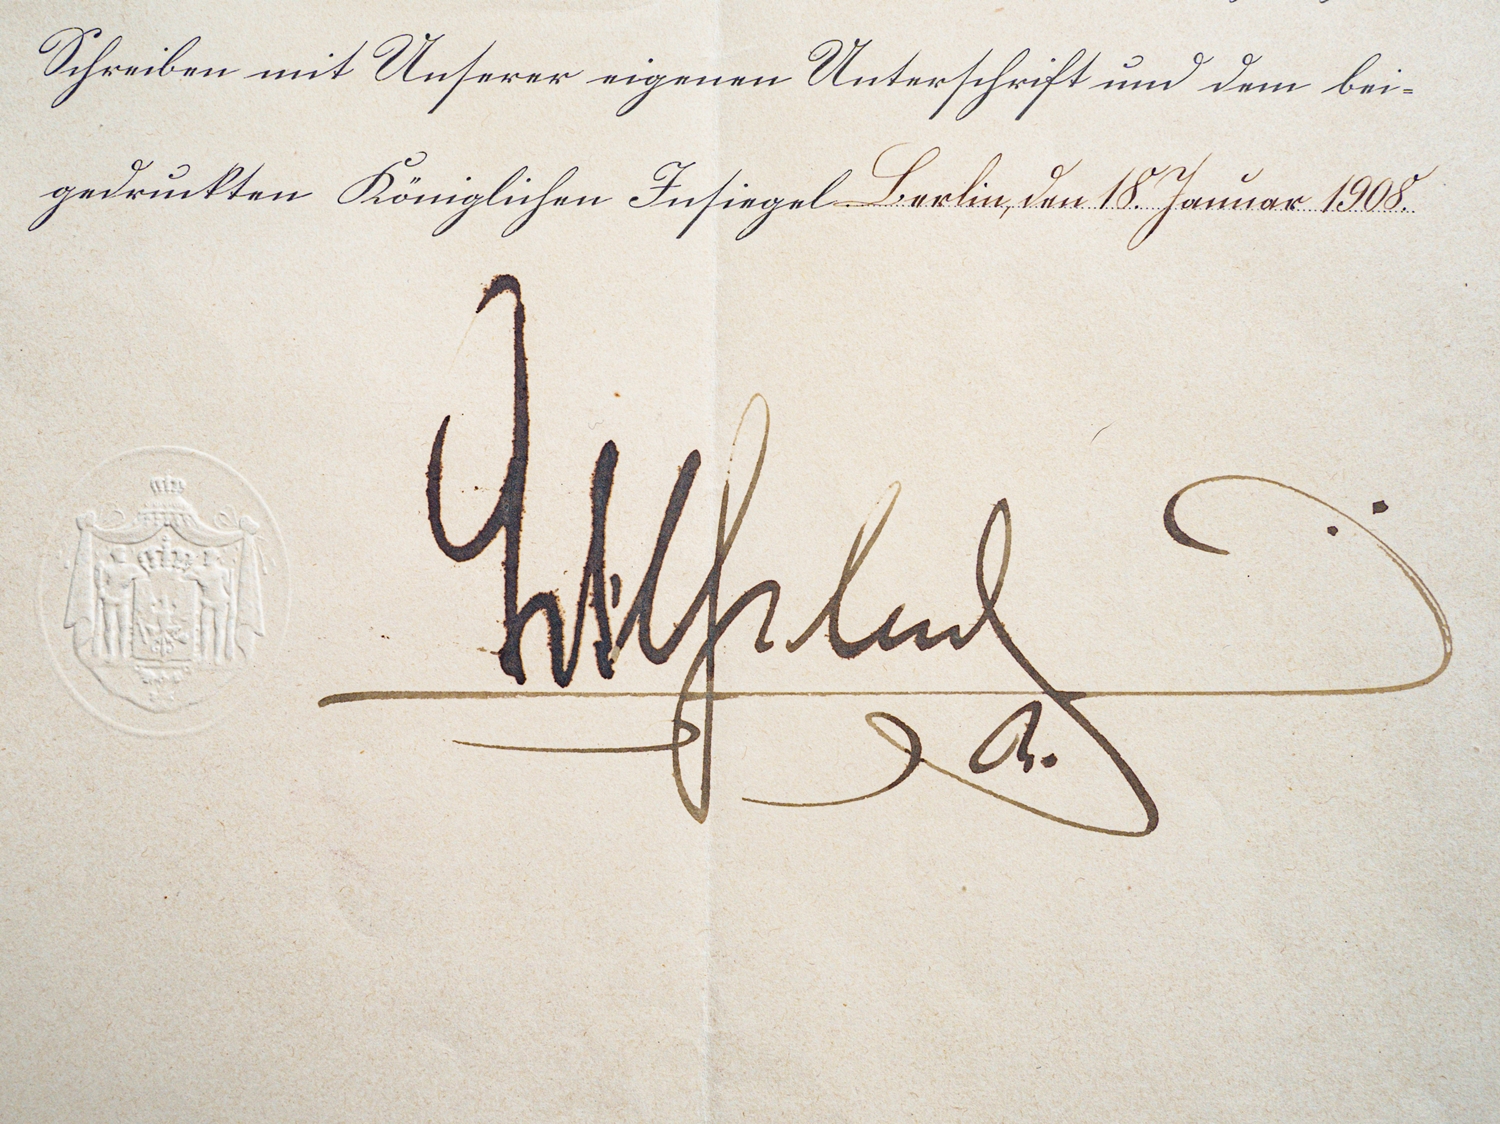 Schreiben mit Unserer eigenen Unterschrift und dem bei=
gedruckten Königlichen Insiegel Berlin, den 18. Januar 1908.
Wilhelm
R.